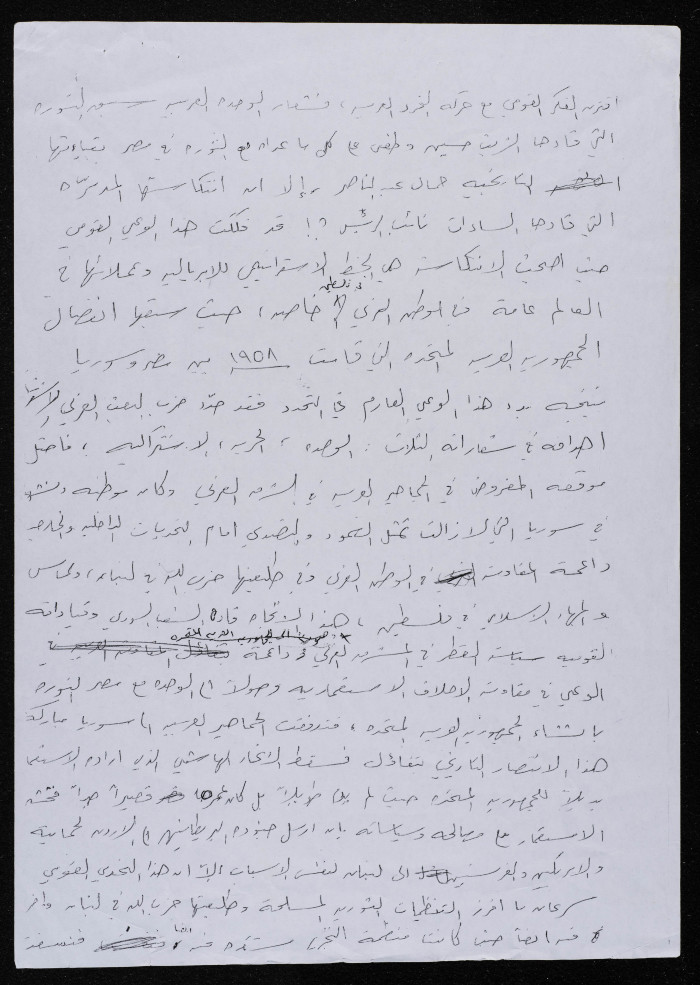 اقترن الفكر القومي مع حركة التحرر العربية، فشعار الوحدة العربية سبق الثورة
التي قادها الشريف حسين وطغى على كل ما عداه مع الثورة في مصر بقيادتها
التاريخية جمال عبد الناصر، إلا ان انتكاستها
التي قادها السادات نائب الرئيس قد هذا الوعي القومي
حيث اضحت الانتكاسة هي الخط الاستراتيجي للامبريالية وعملائها في
العالم عامة في الوطن العربي في فلسطين خاصة، حيث سبقها انفصال
الجمهورية العربية المتحدة التي قامت ١٩٥٨ بين مصر وسوريا
نتيجة هذا الوعي العارم في التحرر فقد حدد حزب البعث العربي الاشتراكي
اهدافه في شعاراته الثلاث: الوحدة، الحرية، الاشتراكية، فاحتل
موقعه المفروض في الجماهير العربية في المشرق العربي وكان موطنه
في سوريا التي لا زالت تمثل الصمود والتصدي امام التحديات الداخلية والخارجية
داعمة المقاومة في الوطن العربي وفي طليعتها حزب الله في لبنان، وحماس
والجهاد الاسلامي في فلسطين، هذا الاتجاه قاد الشعب السوري وقياداته
القومية سياسة القطر في المشرق العربي داعمة
الوعي في مقاومة الاحلاف الاستعمارية وصولا الى الوحدة مع مصر الثورة
بانشاء الجمهورية العربية المتحدة، فتدفقت الجماهير العربية الى سوريا مباركة
هذا الانتصار التاريخي بتفاؤل فسقط الاتحاد الهاشمي الذي اراده الاستعمار
بديلا للجمهورية المتحدة حيث لم يدم طويلا بل كان عمرها قصيرا جدا
الاستعمار على مصالحه وسياساته بان ارسل جنوده البريطانيين الى الاردن لحمايته
والامريكيين والفرنسيين الى لبنان لنفس الاسباب إلا ان هذا التحدي القومي
سرعان ما افرز التنظيمات الثورية المسلحة وطليعتها حزب الله في لبنان
فيه ايضا حيث كانت منظمة التحرير